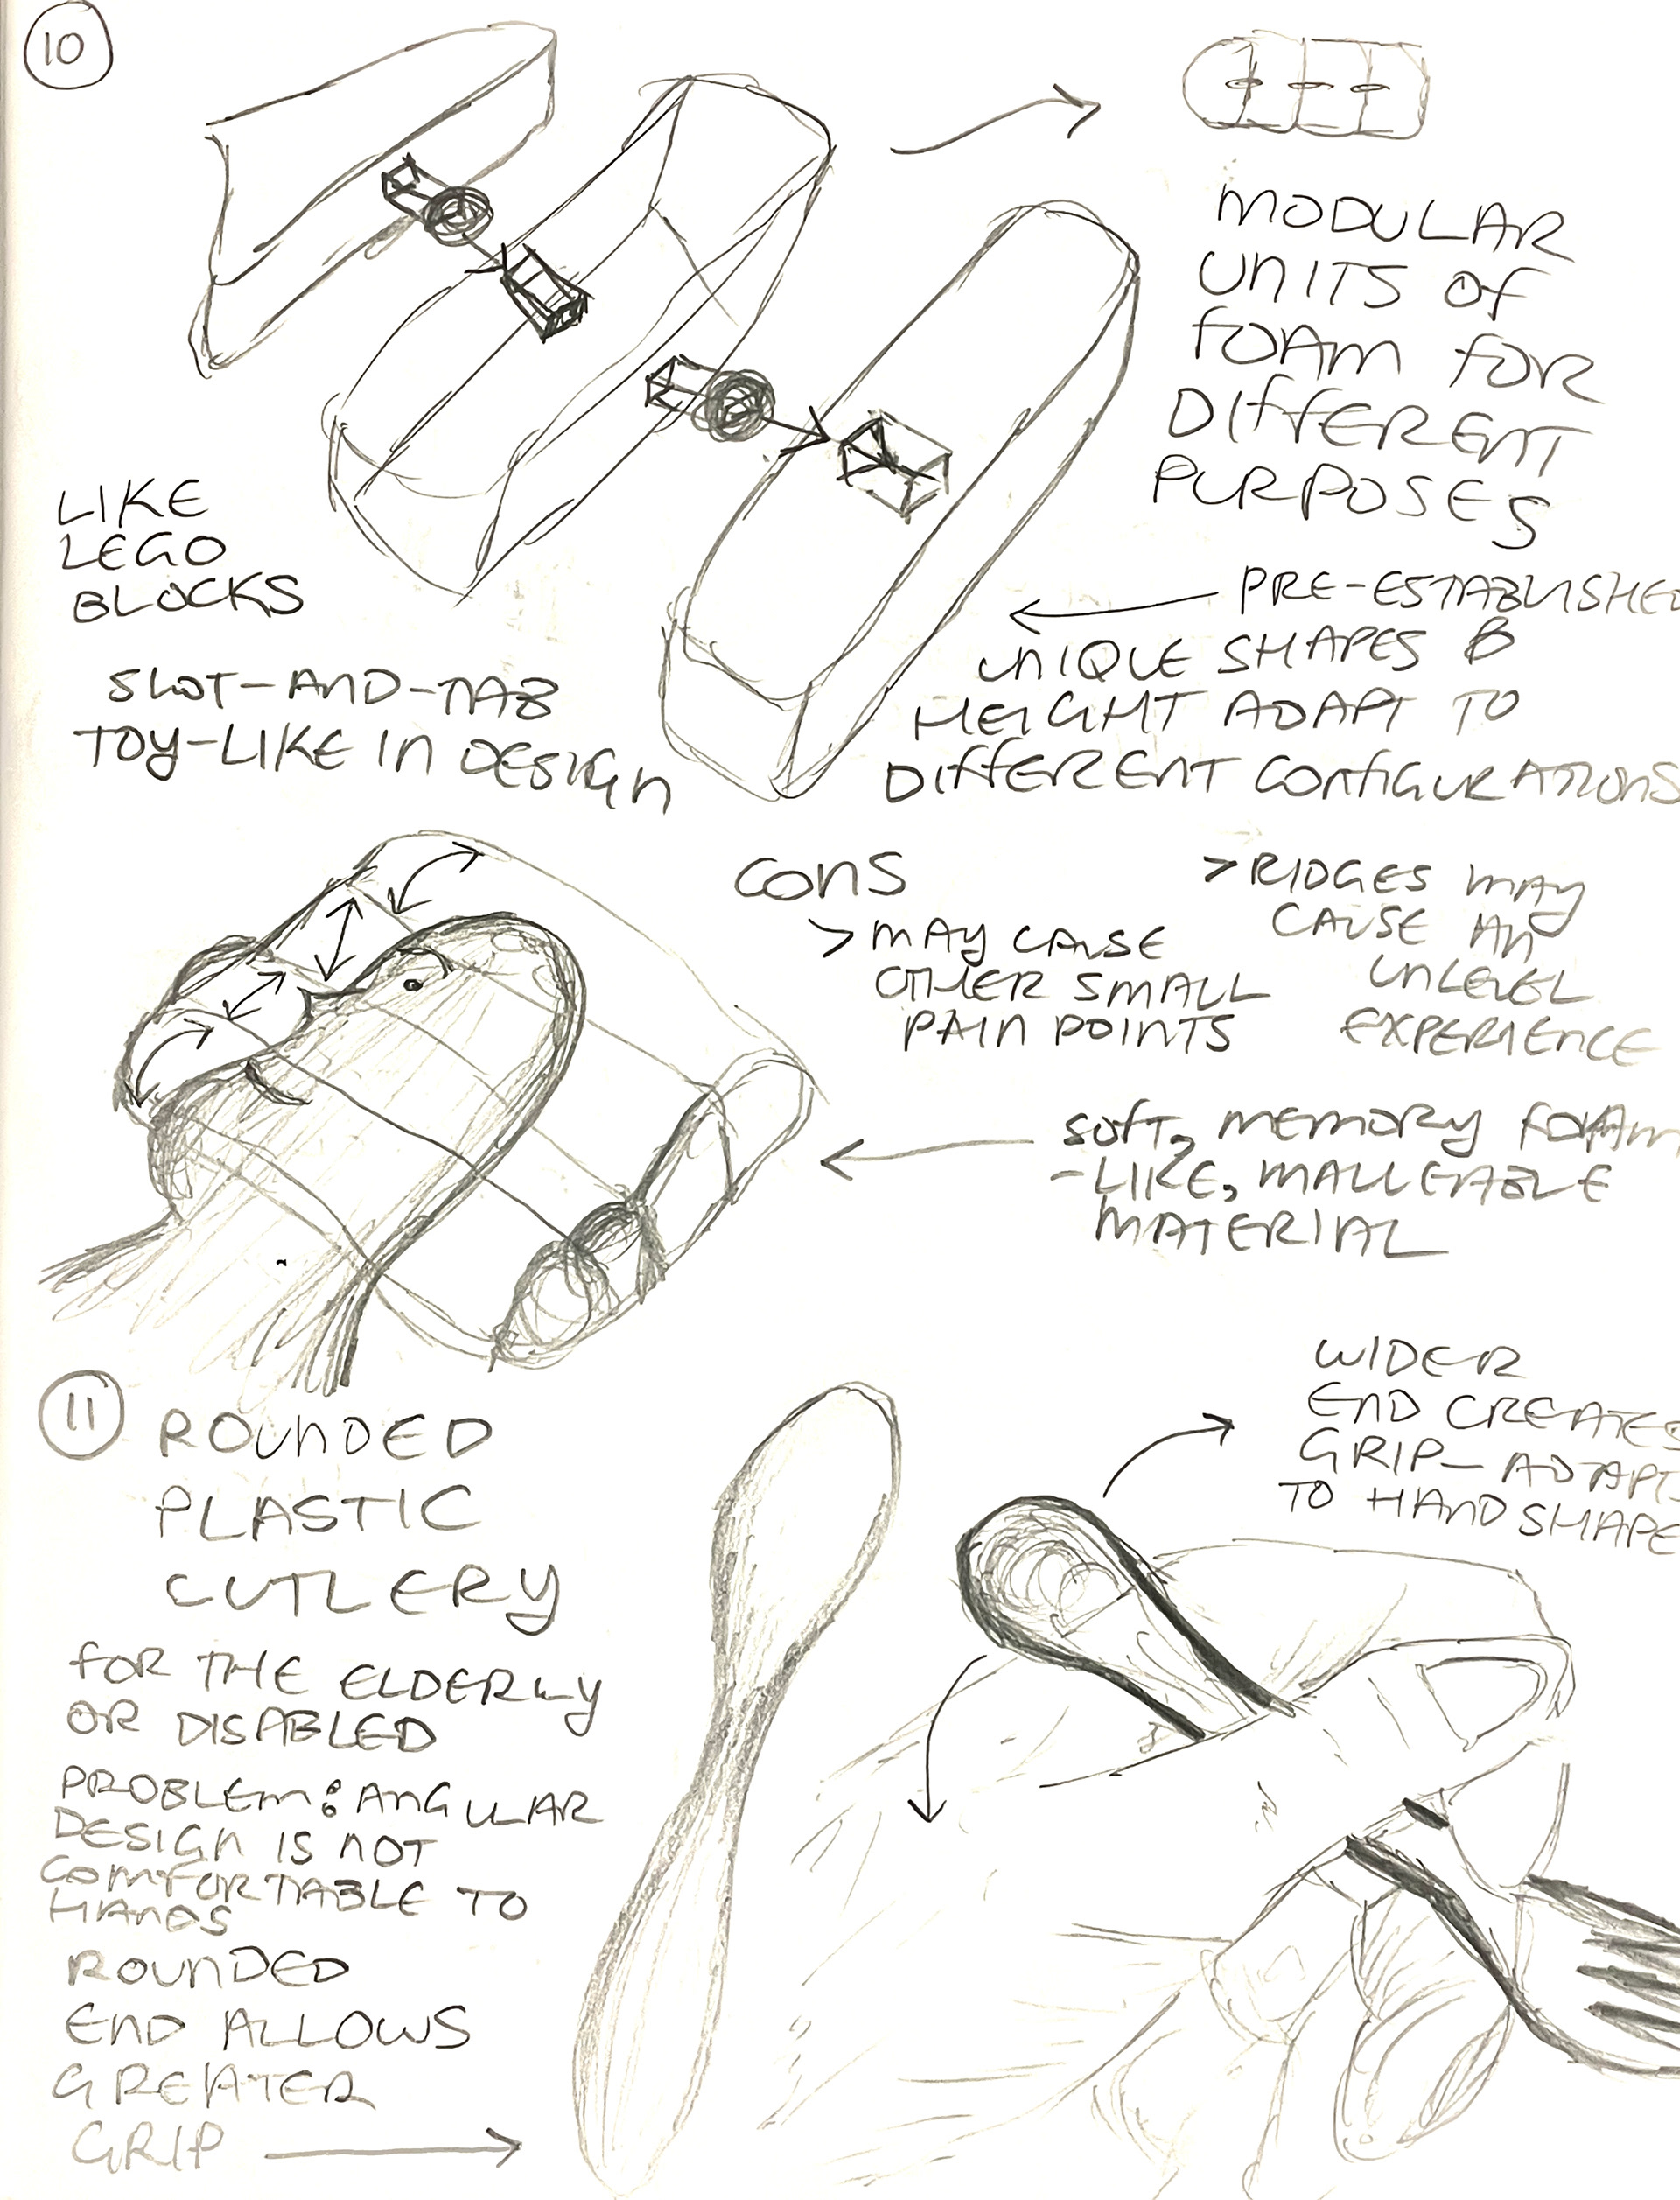 10
MODULAR
UNITS OF
FOAM FOR
DIFFERENT
PURPOSES
LIKE
LEGO
BLOCKS
SLOT-AND-TAB
TOY-LIKE IN DESIGN
PRE-ESTABLISHED
UNIQUE SHAPES &
HEIGHT ADAPT TO
DIFFERENT CONFIGURATIONS
CONS
> MAY CAUSE
OTHER SMALL
PAIN POINTS
> RIDGES MAY
CAUSE AN
UNLEVEL
EXPERIENCE
SOFT, MEMORY FOAM
-LIKE, MALLEABLE
MATERIAL
11
ROUNDED
PLASTIC
CUTLERY
FOR THE ELDERLY
OR DISABLED
PROBLEM: ANGULAR
DESIGN IS NOT
COMFORTABLE TO
HANDS
ROUNDED
END ALLOWS
GREATER
GRIP
WIDER
END CREATES
GRIP- ADAPTS
TO HAND SHAPE